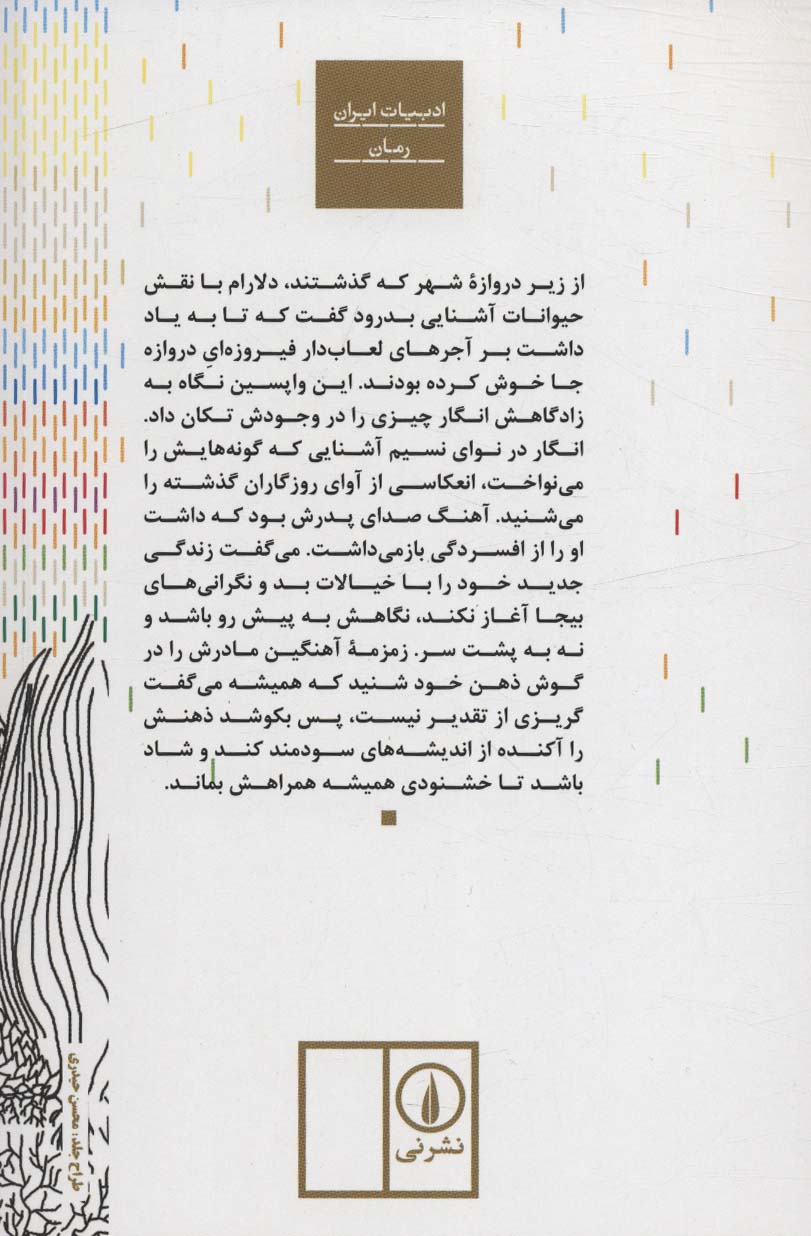 ادبیات ایران
رمان
از زیر دروازهٔ شهر که گذشتند، دلارام با نقش
حیوانات آشنایی بدرود گفت که تا به یاد
داشت بر آجرهای لعاب‌دار فیروزه‌ایِ دروازه
جا خوش کرده بودند. این واپسین نگاه به
زادگاهش انگار چیزی را در وجودش تکان داد.
انگار در نوای نسیم آشنایی که گونه‌هایش را
می‌نواخت، انعکاسی از آوای روزگاران گذشته را
می‌شنید. آهنگ صدای پدرش بود که داشت
او را از افسردگی بازمی‌داشت. می‌گفت زندگی
جدید خود را با خیالات بد و نگرانی‌های
بیجا آغاز نکند، نگاهش به پیش رو باشد و
نه به پشت سر. زمزمهٔ آهنگین مادرش را در
گوش ذهن خود شنید که همیشه می‌گفت
گریزی از تقدیر نیست، پس بکوشد ذهنش
را آکنده از اندیشه‌های سودمند کند و شاد
باشد تا خشنودی همیشه همراهش بماند.
طراح جلد: محسن حیدری
نشرنی